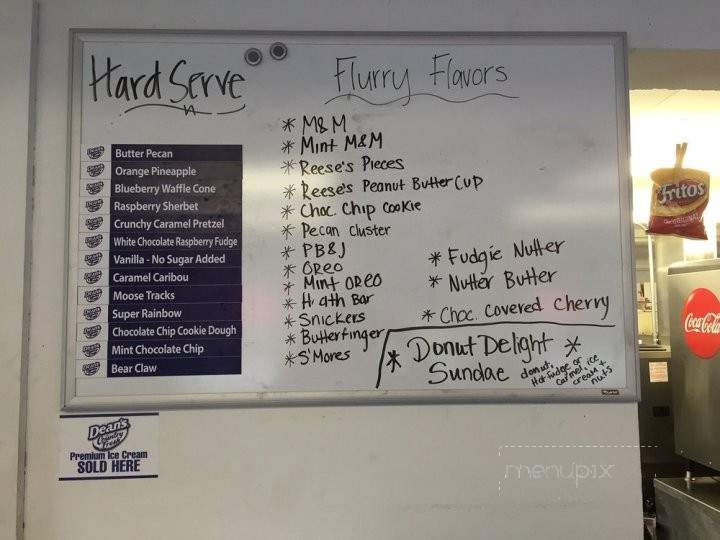 Hard Serve
Butter Pecan
Orange Pineapple
Blueberry Waffle Cone
Raspberry Sherbet
Crunchy Caramel Pretzel
White Chocolate Raspberry Fudge
Vanilla - No Sugar Added
Caramel Caribou
Moose Tracks
Super Rainbow
Chocolate Chip Cookie Dough
Mint Chocolate Chip
Bear Claw
Flurry Flavors
* M&M
* Mint M&M
* Reese's Pieces
* Reese's Peanut Butter Cup
* Choc. Chip Cookie
* Pecan Cluster
* PB&J
* OREO
* Mint OREO
* H ath Bar
* Snickers
* Butterfinger
* S'Mores
* Fudgie Nutter
* Nutter Butter
* Choc. Covered Cherry
* Donut Delight *
Sundae
donut, ice
Hot fudge or
Carmel, +
cream nuts
Dean's
Country
Fresh
Premium Ice Cream
SOLD HERE
Fritos
ORIGINAL
Coca-Cola
menupix